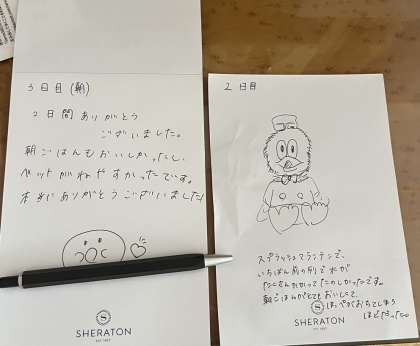 3日目(朝)
2日間ありがとう
ございました。
朝ごはんもおいしかったし、
ベッドがねやすかったです。
本当にありがとうございました!
SHERATON
2日目
スプラッシュマウンテンで、
いちばん前の列で水が
たくさんかかってたのしかったです。
朝ごはんがとてもおいしくて、
ほっぺがおちてしまう
ほどだった。
SHERATON